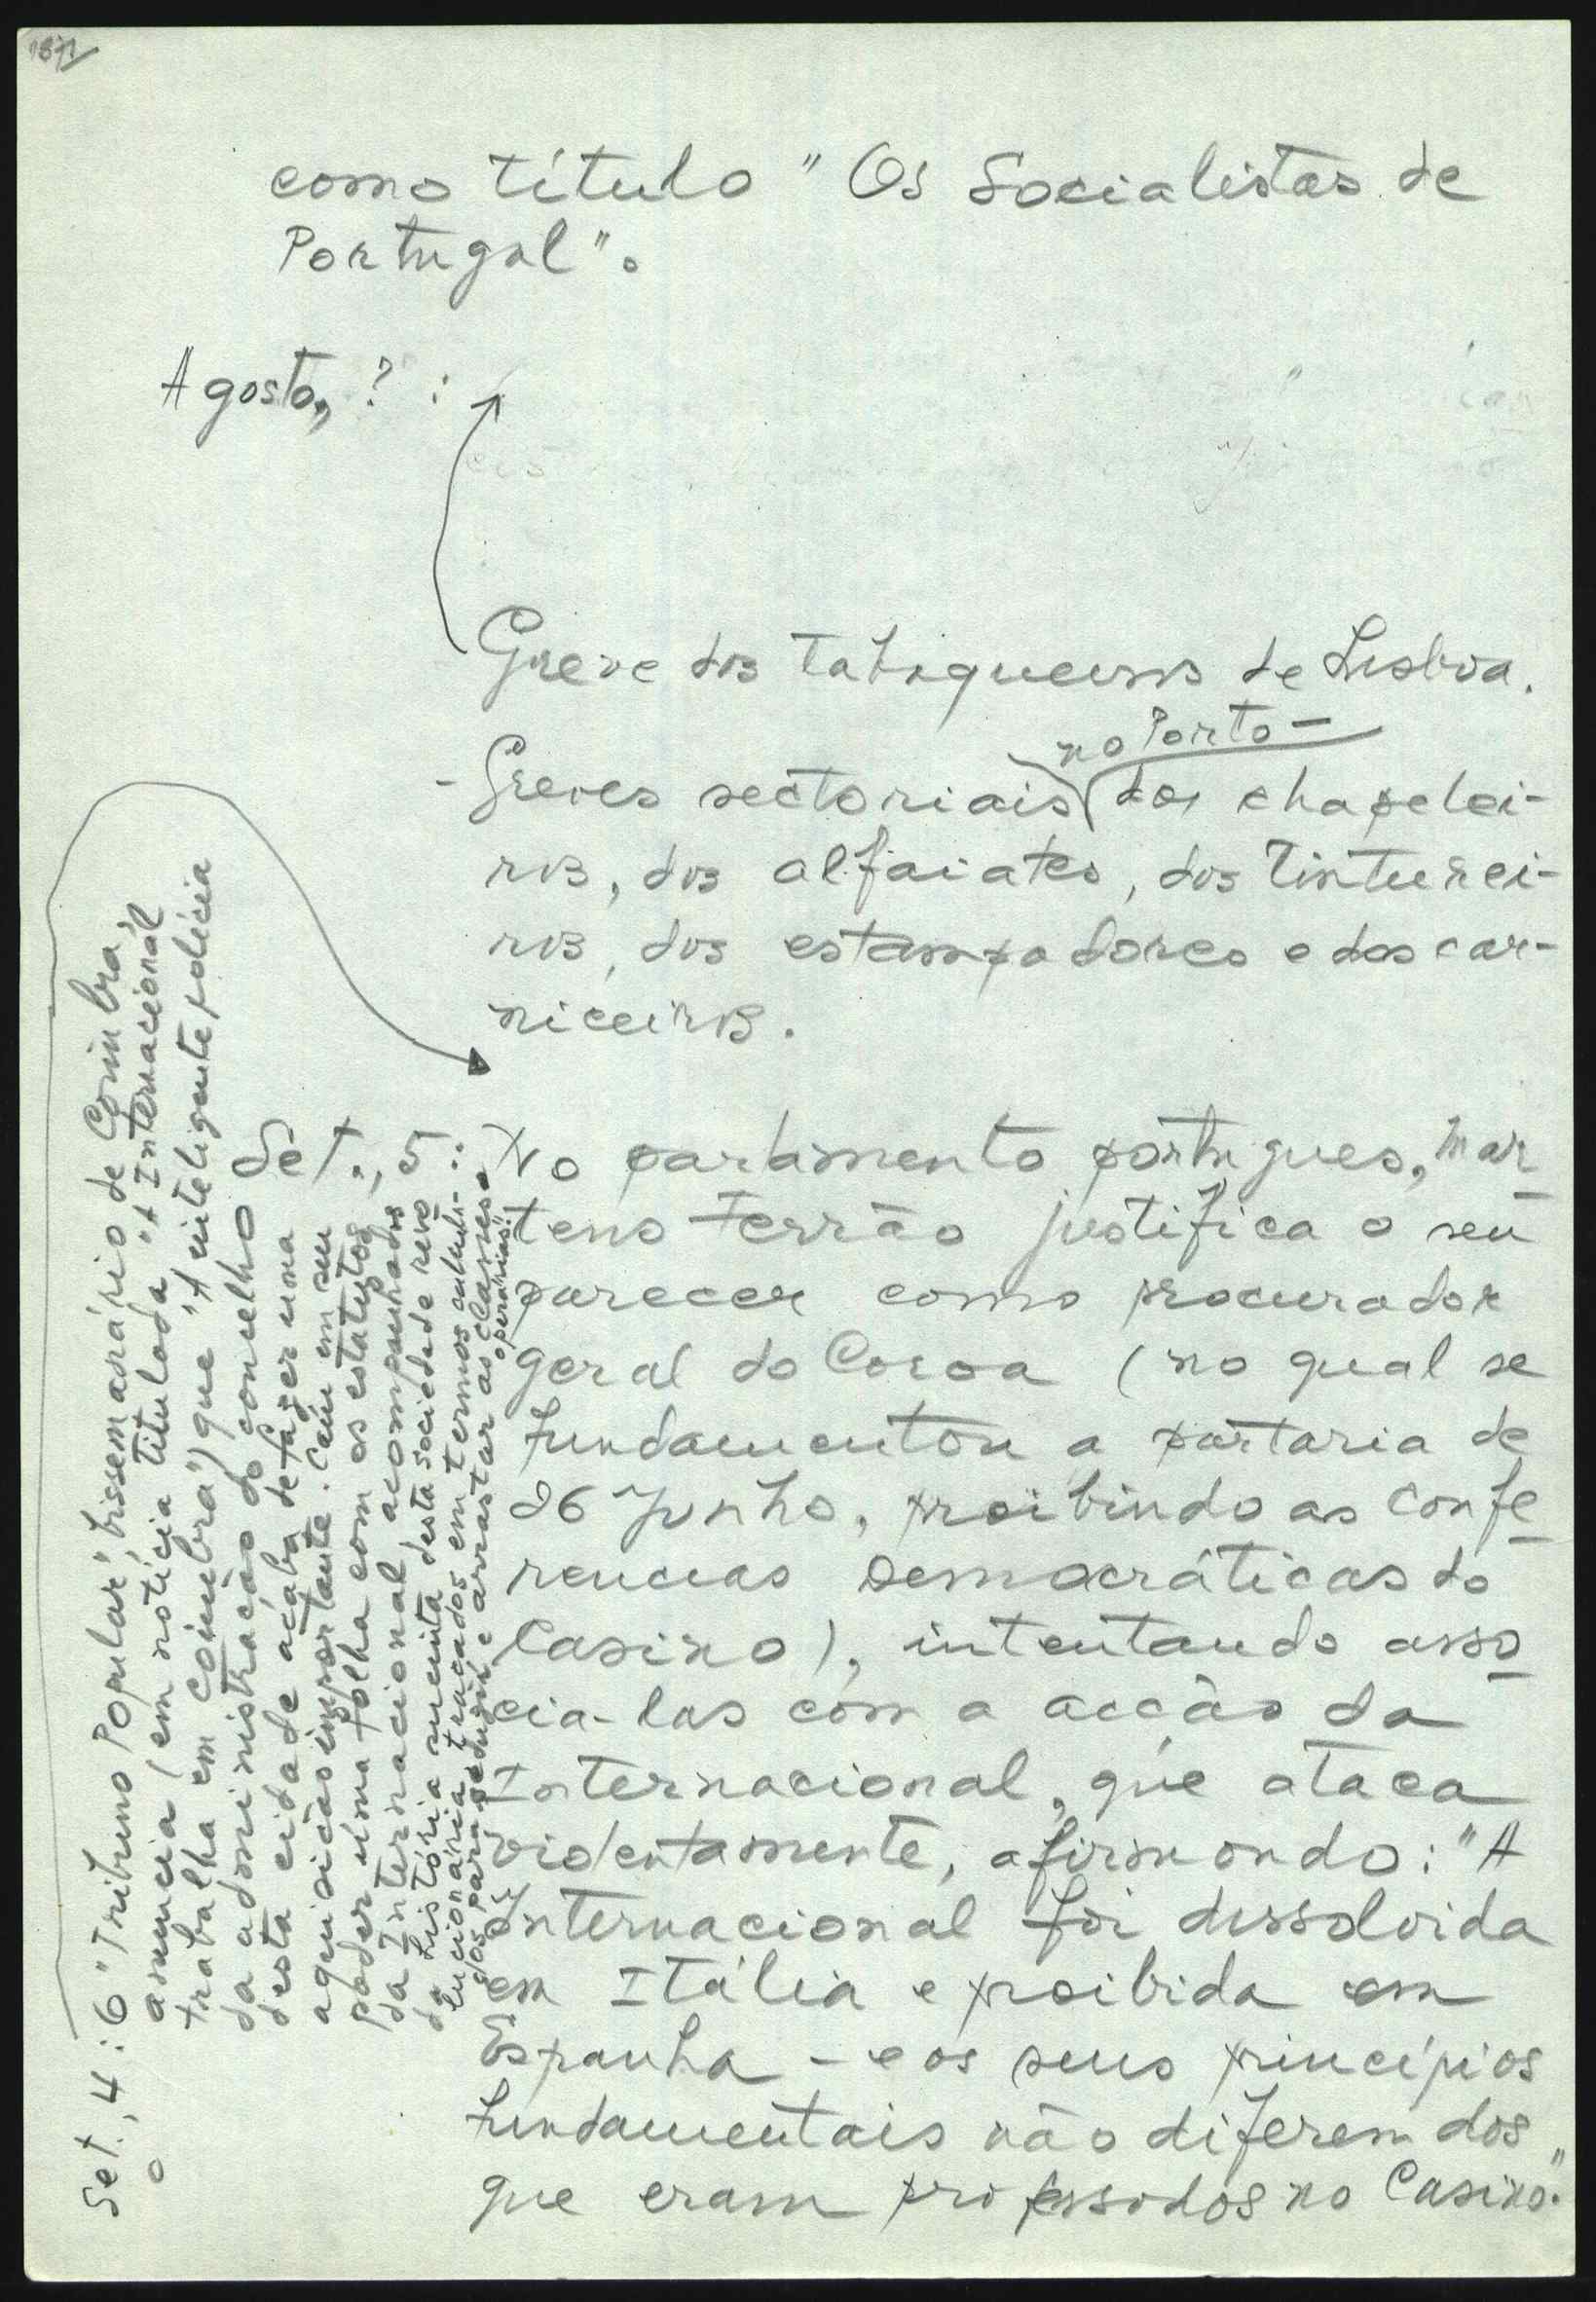 1871
como título "Os Socialistas de
Portugal".
Agosto, ? :
Greve dos tabaqueiros de Lisboa.
no Porto -
- Greves sectoriais dos chapelei-
ros, dos alfaiates, dos Tinturei-
ros, dos estampadores e dos car-
niceiros.
Set., 5: No parlamento portugues, Mar-
tens Ferrão justifica o seu
parecer como procurador
geral da Coroa (no qual se
fundamentou a portaria de
26 Junho, proibindo as Confe-
rencias Democráticas do
Casino), intentando asso-
cia-las com a acção da
Internacional, que ataca
violentamente, afirmando: "A
Internacional foi dissolvida
em Itália e proibida em
Espanha - e os seus princípios
fundamentais não diferem dos
que eram professados no Casino."
Set., 4: O "Tribuno Popular", bissemanário de Coimbra,
anuncia (em notícia titulada "A Internacional
trabalha em Coimbra") que "A inteligente polícia
da administração do conselho
desta cidade acaba de fazer uma
aquisição importante. Caiu em seu
poder uma folha com os estatutos
da Internacional, acompanhados
da história sucinta desta sociedade revo-
lucionária traçados em termos calcula-
dos para seduzir e arrastar as classes
operárias".